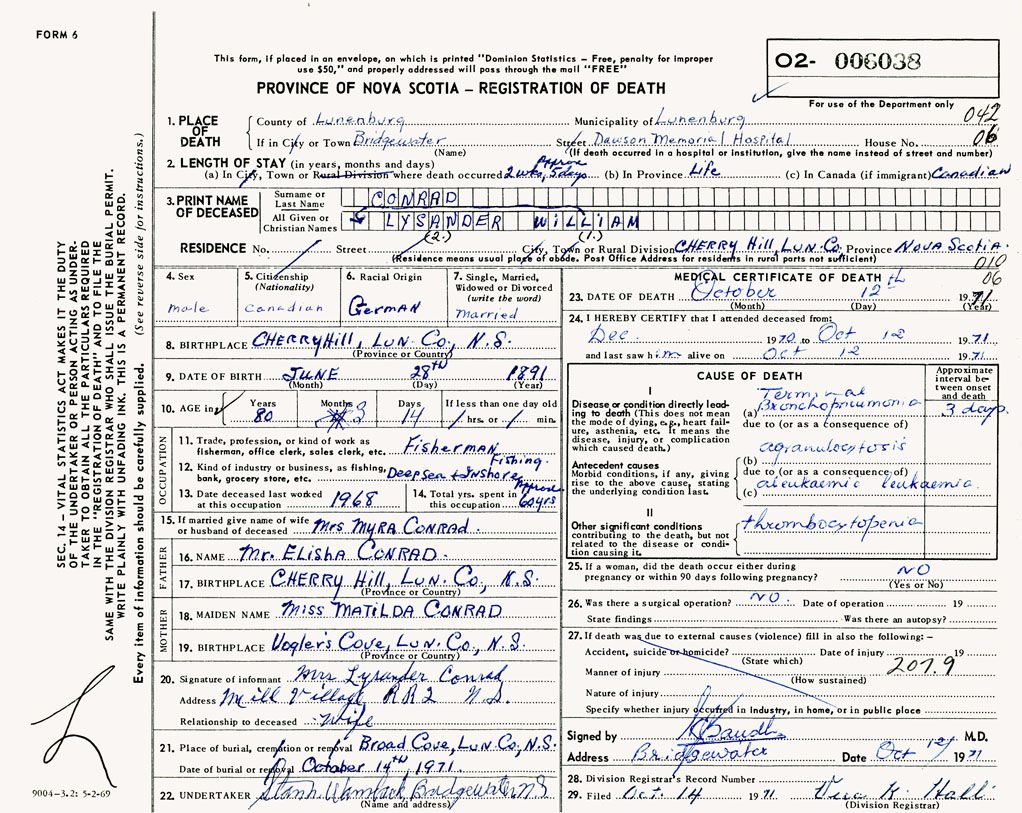 FORM 6
This form, if placed in an envelope, on which is printed "Dominion Statistics – Free, penalty for improper
use $50," and properly addressed will pass through the mail "FREE"
O2- 006038
PROVINCE OF NOVA SCOTIA – REGISTRATION OF DEATH
For use of the Department only
1. PLACE OF DEATH
County of Lunenburg Municipality of Lunenburg 042
If in City or Town Bridgewater Street Dawson Memorial Hospital House No. 06
(Name) (If death occurred in a hospital or institution, give the name instead of street and number)
2. LENGTH OF STAY (in years, months and days)
(a) In City, Town or Rural Division where death occurred 2 wks, 5 days Approx (b) In Province Life (c) In Canada (if immigrant) Canadian
3. PRINT NAME OF DECEASED
Surname or Last Name CONRAD
All Given or Christian Names LYSANDER WILLIAM
(2.) (1.)
RESIDENCE No. Street City, Town or Rural Division CHERRY Hill, LUN. Co. Province NOVA SCOTIA.
(Residence means usual place of abode. Post Office Address for residents in rural parts not sufficient) 010
06
4. Sex male
5. Citizenship (Nationality) Canadian
6. Racial Origin GERMAN
7. Single, Married, Widowed or Divorced (write the word) Married
8. BIRTHPLACE CHERRY Hill, LUN. Co., N.S.
(Province or Country)
9. DATE OF BIRTH JUNE 28th 1891
(Month) (Day) (Year)
10. AGE in Years 80 Months 3 Days 14 If less than one day old hrs. or min.
OCCUPATION
11. Trade, profession, or kind of work as fisherman, office clerk, sales clerk, etc. FISHERMAN
12. Kind of industry or business, as fishing, bank, grocery store, etc. Deep Sea + Inshore Fishing.
13. Date deceased last worked at this occupation 1968
14. Total yrs. spent in this occupation Approx 60 yrs
15. If married give name of wife or husband of deceased Mrs MYRA CONRAD.
FATHER
16. NAME Mr. ELISHA CONRAD.
17. BIRTHPLACE CHERRY Hill, LUN. Co., N.S.
(Province or Country)
MOTHER
18. MAIDEN NAME Miss MATILDA CONRAD
19. BIRTHPLACE Vogler's Cove, LUN. Co., N.S.
(Province or Country)
20. Signature of informant Mrs Lysander Conrad
Address Mill Village RR2 N S
Relationship to deceased Wife
21. Place of burial, cremation or removal Broad Cove, LUN. Co, N.S.
Date of burial or removal October 14th, 1971.
22. UNDERTAKER Bridgewater NS
(Name and address)
MEDICAL CERTIFICATE OF DEATH
23. DATE OF DEATH October 12 th 1971
(Month) (Day) (Year)
24. I HEREBY CERTIFY that I attended deceased from:
Dec 1970 to Oct 12 1971
and last saw him alive on Oct 12 1971
CAUSE OF DEATH
Approximate interval between onset and death
I
Disease or condition directly leading to death (This does not mean the mode of dying, e.g., heart failure, asthenia, etc. It means the disease, injury, or complication which caused death.)
(a) Terminal Bronchopneumonia 3 days
due to (or as a consequence of)
agranulocytosis
Antecedent causes
Morbid conditions, if any, giving rise to the above cause, stating the underlying condition last.
(b)
due to (or as a consequence of)
aleukaemic leukaemia.
(c)
II
Other significant conditions contributing to the death, but not related to the disease or condition causing it. thrombocytopenia
25. If a woman, did the death occur either during pregnancy or within 90 days following pregnancy? NO
(Yes or No)
26. Was there a surgical operation? NO. Date of operation 19
State findings Was there an autopsy?
27. If death was due to external causes (violence) fill in also the following: –
Accident, suicide or homicide? Date of injury 19
(State which)
Manner of injury 207.9
(How sustained)
Nature of injury
Specify whether injury occurred in industry, in home, or in public place
Signed by M.D.
Address Bridgewater Date Oct 12/ 1971
28. Division Registrar's Record Number
29. Filed Oct. 14 1971 Vera K. Hall
(Division Registrar)
SEC. 14 – VITAL STATISTICS ACT MAKES IT THE DUTY
OF THE UNDERTAKER OR PERSON ACTING AS UNDERTAKER TO OBTAIN ALL THE PARTICULARS REQUIRED
IN THE "REGISTRATION OF DEATH" AND TO FILE THE
SAME WITH THE DIVISION REGISTRAR WHO SHALL ISSUE THE BURIAL PERMIT.
WRITE PLAINLY WITH UNFADING INK. THIS IS A PERMANENT RECORD.
Every item of information should be carefully supplied. (See reverse side for instructions.)
9004-3.2: 5-2-69